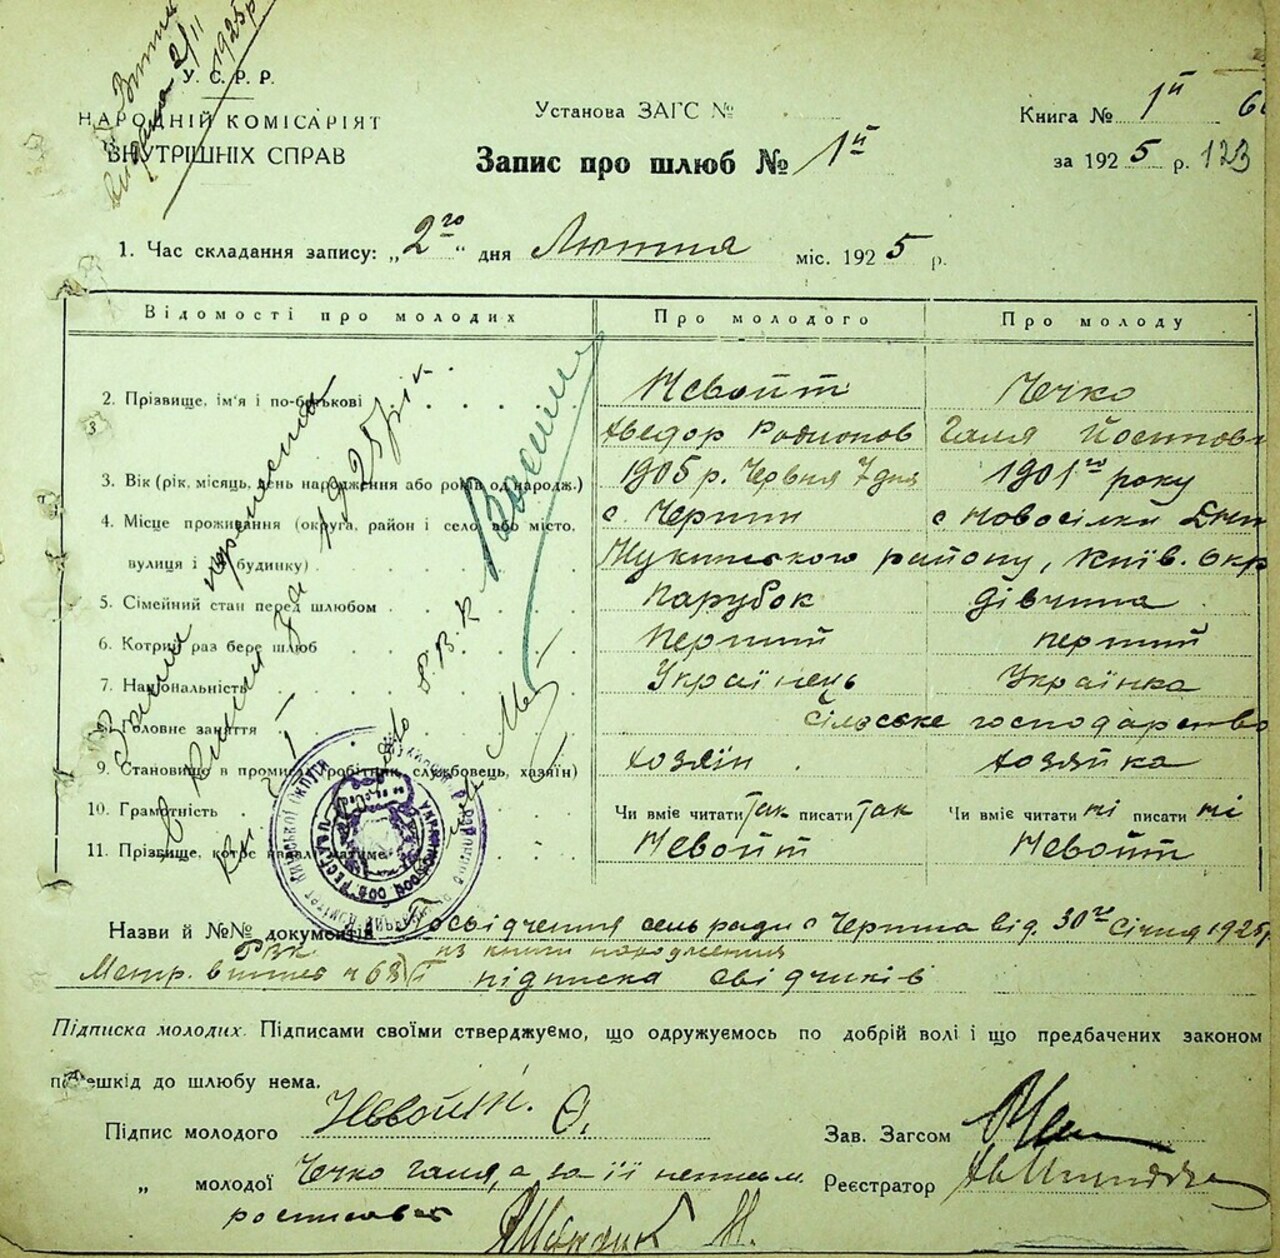 У. С. Р. Р.
НАРОДНІЙ КОМІСАРІЯТ
ВНУТРІШНІХ СПРАВ
2/II 1925 р
Установа ЗАГС №
Запис про шлюб № 1й
Книга № 1й
за 1925 р. 123
1. Час складання запису: „2го“ дня Лютня міс. 1925 р.
Відомості про молодих Про молодого Про молоду
2. Прізвище, ім'я і по-батькові Невойт Чечко
Хведор Родионов Галя Йосипов
3. Вік (рік, місяць, день народження або років од народж.) 1905 р. Червня 7 дня 1901го року
4. Місце проживання (округа, район і село або місто, с. Черпин с Новосілки
вулиця і № будинку) Жукинського району, Київ. Окр
5. Сімейний стан перед шлюбом Парубок дівчина
6. Котрий раз бере шлюб перший перший
7. Національність Українець Українка
8. Головне заняття Сільске господарство
9. Становище в промислі (робітник, службовець, хазяїн) хозяїн хозяйка
10. Грамотність Чи вміє читати так писати так Чи вміє читати ні писати ні
11. Прізвище, котре надалі матиме Невойт Невойт
Назви й №№ документів Посвідчення сельради с Черпина від. 30го Січня 1925р
РВК. из книги народження
Метр. витяг н 68 підписка свідчиків
Підписка молодих. Підписами своїми стверджуємо, що одружуємось по добрій волі і що предбачених законом
перешкід до шлюбу нема.
Підпис молодого Невойт. Ѳ.
Зав. Загсом
„ молодої Чечко Галя, а за її неписьм.
Реєстратор
росписався